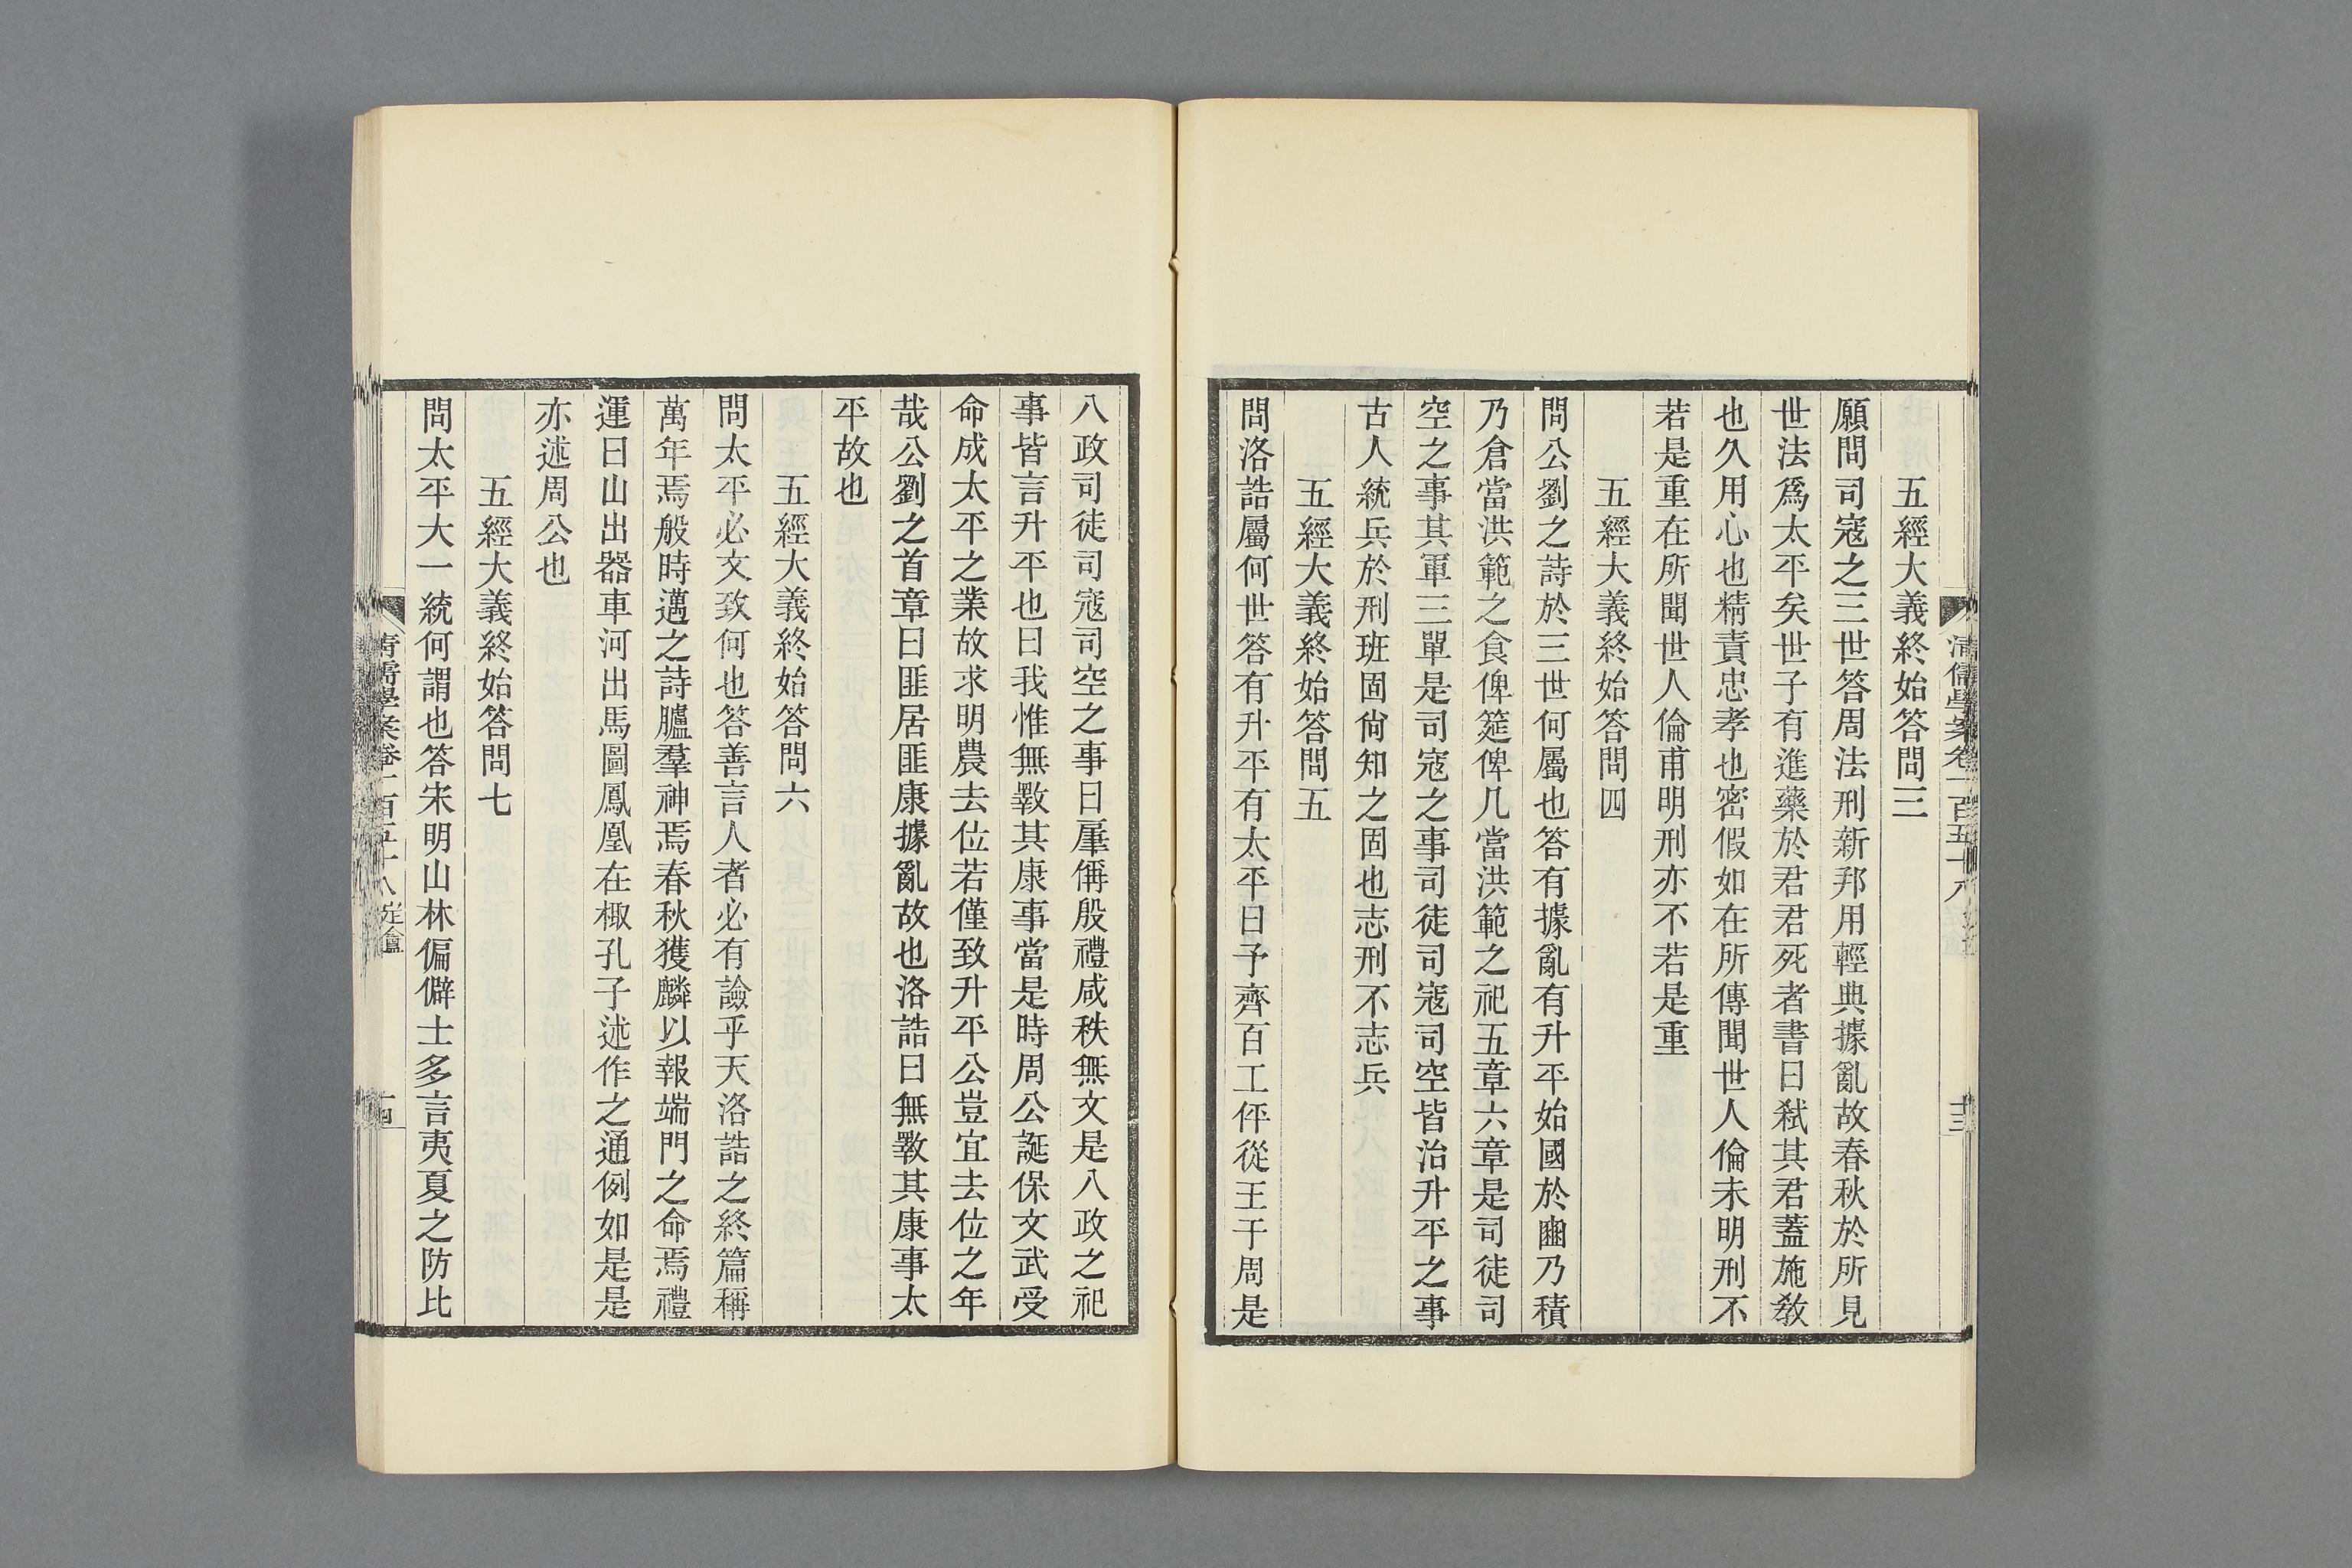 清儒學案卷一百五十八
十三
五經大義終始答問三
願問司寇之三世答周法刑新邦用輕典據亂故春秋於所見
世法爲太平矣世子有進藥於君君死者書曰弒其君蓋施敎
也久用心也精責忠孝也密假如在所傳聞世人倫未明刑不
若是重在所聞世人倫甫明刑亦不若是重
五經大義終始答問四
問公劉之詩於三世何屬也答有據亂有升平始國於豳乃積
乃倉當洪範之食俾筵俾几當洪範之祀五章六章是司徒司
空之事其軍三單是司寇之事司徒司寇司空皆治升平之事
古人統兵於刑班固尙知之固也志刑不志兵
五經大義終始答問五
問洛誥屬何世答有升平有太平曰予齊百工伻從王于周是
八政司徒司寇司空之事曰肇偁殷禮咸秩無文是八政之祀
事皆言升平也曰我惟無斁其康事當是時周公誕保文武受
命成太平之業故求明農去位若僅致升平公豈宜去位之年
哉公劉之首章曰匪居匪康據亂故也洛誥曰無斁其康事太
平故也
五經大義終始答問六
問太平必文致何也答善言人者必有諗乎天洛誥之終篇稱
萬年焉般時邁之詩臚羣神焉春秋獲麟以報端門之命焉禮
運曰山出器車河出馬圖鳳凰在棷孔子述作之通例如是是
亦述周公也
五經大義終始答問七
問太平大一統何謂也答宋明山林偏僻士多言夷夏之防比
清儒學案卷一百五十八 定盦
十四